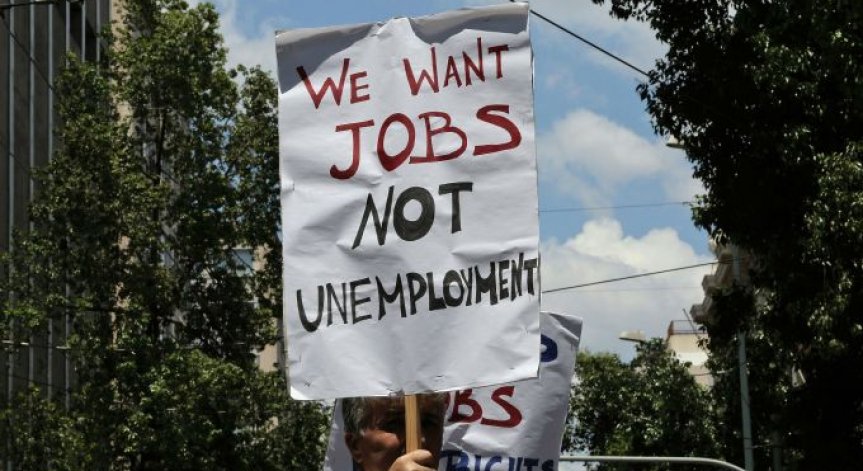 WE WANT
JOBS
NOT
UNEMPLOYMENT
OBS
RIGHTS